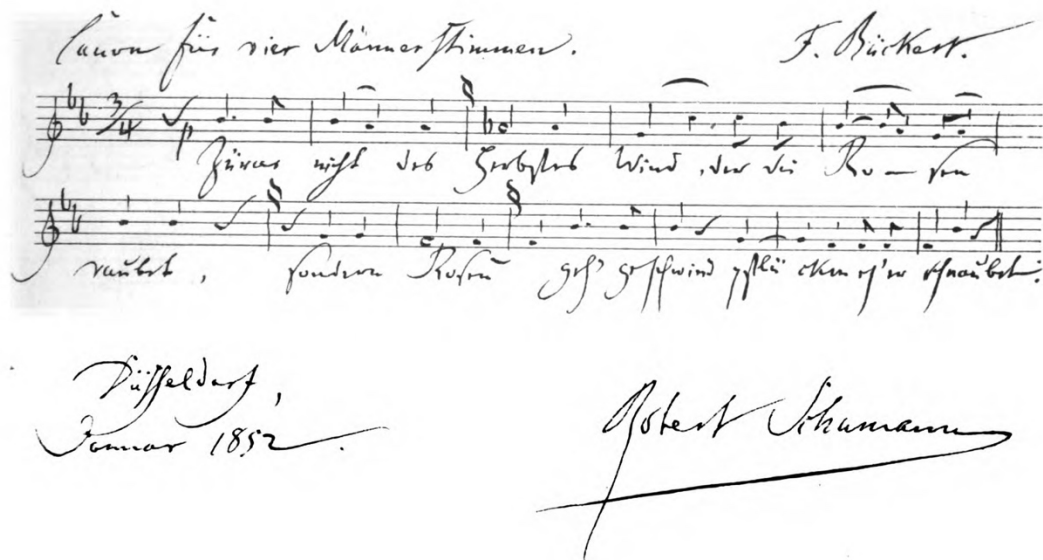 Canon für vier Männerstimmen. F. Rückert.
3/4 p
Zürne nicht des Herbstes Wind, der die Ro – sen
raubet, sondern Rosen geh' geschwind pflücken eh' er schnaubet.
Düsseldorf,
Januar 1852.
Robert Schumann